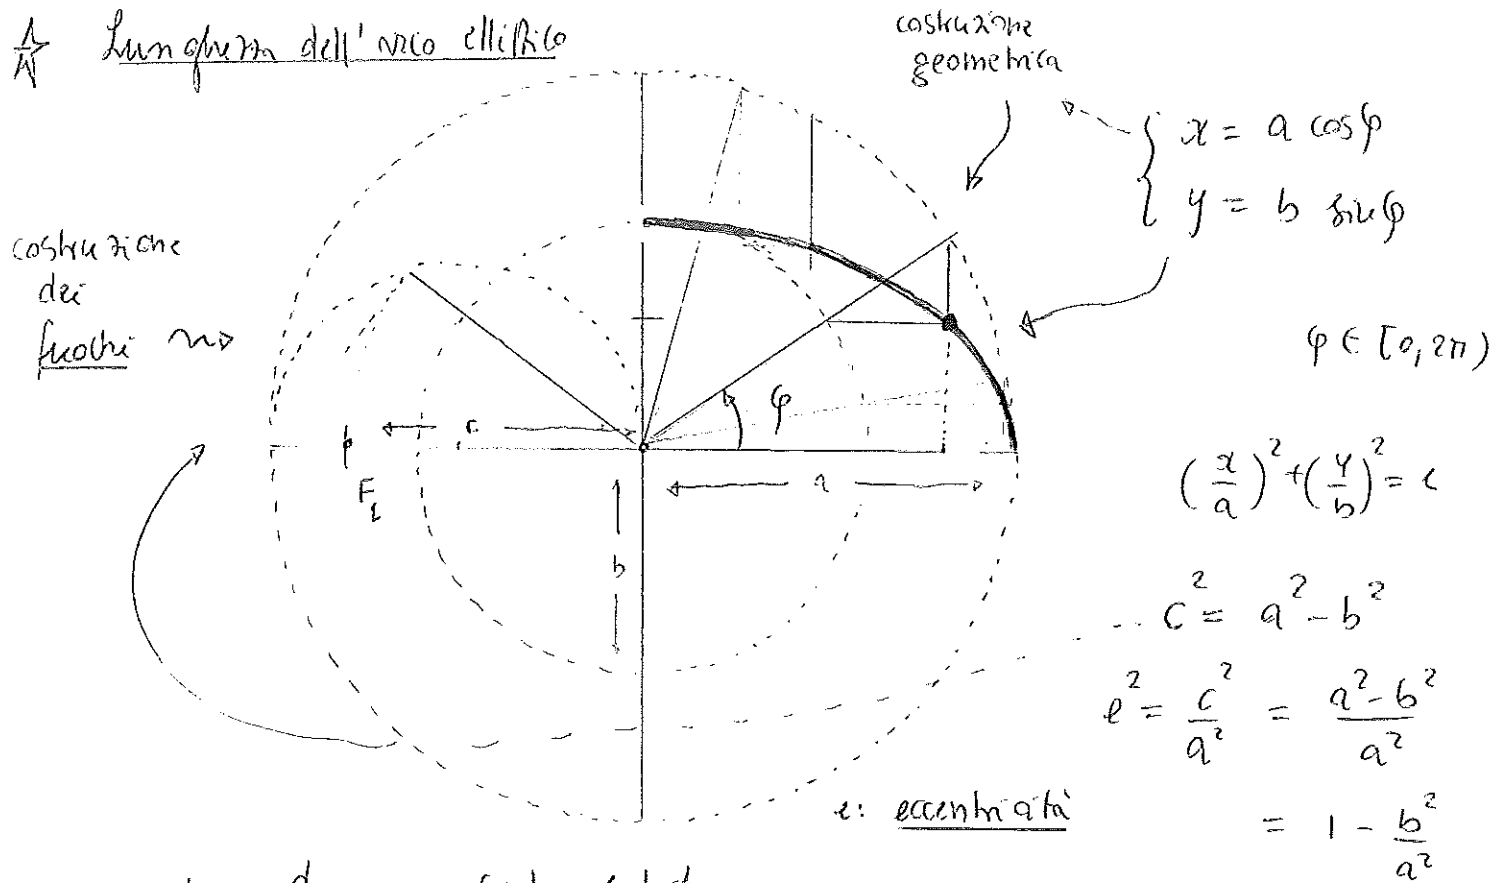 ☆ Lunghezza dell'arco ellittico
costruzione
geometrica
x = a cosφ
y = b sinφ
costruzione
dei
fuochi
φ
φ ∈ [0, 2π)
c
F₁
a
b
(x/a)² + (y/b)² = 1
c² = a² - b²
e² = c²/a² = (a² - b²)/a²
e: eccentricità
= 1 - b²/a²